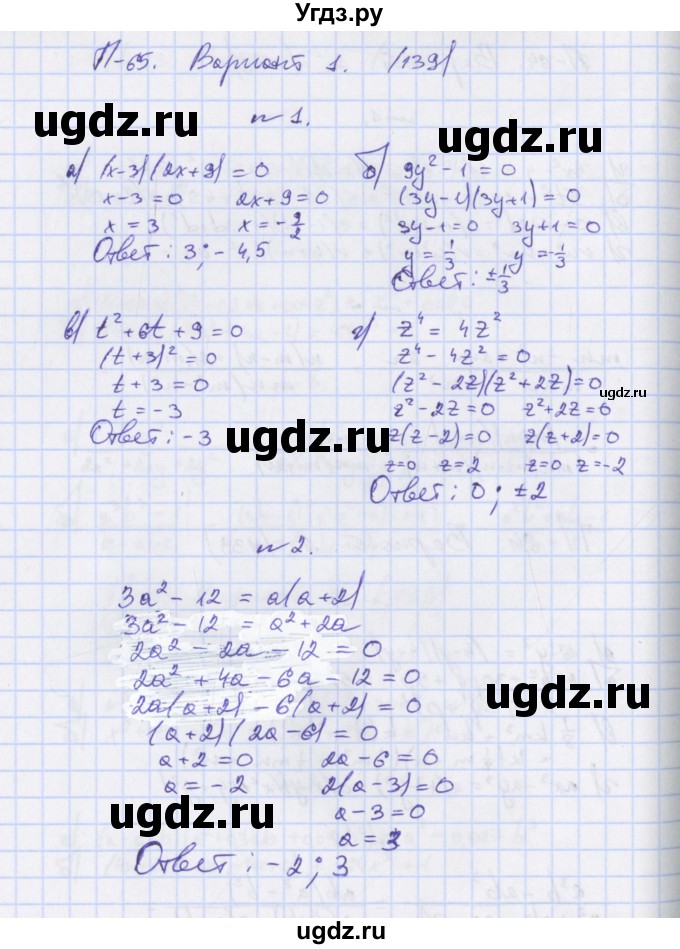 Угдз.ру
П-65. Вариант 1. /139/
ugdz.ru
ugdz.ru
n 1.
а) (x-3)(2x+9) = 0
x-3=0 2x+9=0
x = 3 x = -9/2
Ответ: 3; -4,5
б) 9y² - 1 = 0
(3y-1)(3y+1) = 0
3y-1=0 3y+1=0
y = 1/3 y = -1/3
Ответ: ±1/3
в) t² + 6t + 9 = 0
(t+3)² = 0
t + 3 = 0
t = -3
Ответ: -3
г) z⁴ = 4z²
z⁴ - 4z² = 0
(z² - 2z)(z² + 2z) = 0
z² - 2z = 0 z² + 2z = 0
z(z-2) = 0 z(z+2) = 0
z=0 z=2 z=0 z=-2
Ответ: 0; ±2
ugdz.ru
ugdz.ru
n 2.
3a² - 12 = a(a+2)
3a² - 12 = a² + 2a
2a² - 2a - 12 = 0
2a² + 4a - 6a - 12 = 0
2a(a+2) - 6(a+2) = 0
(a+2)(2a-6) = 0
a+2 = 0 2a-6 = 0
a = -2 2(a-3) = 0
a-3 = 0
a = 3
Ответ: -2; 3
ugdz.ru
ugdz.ru
ugdz.ru